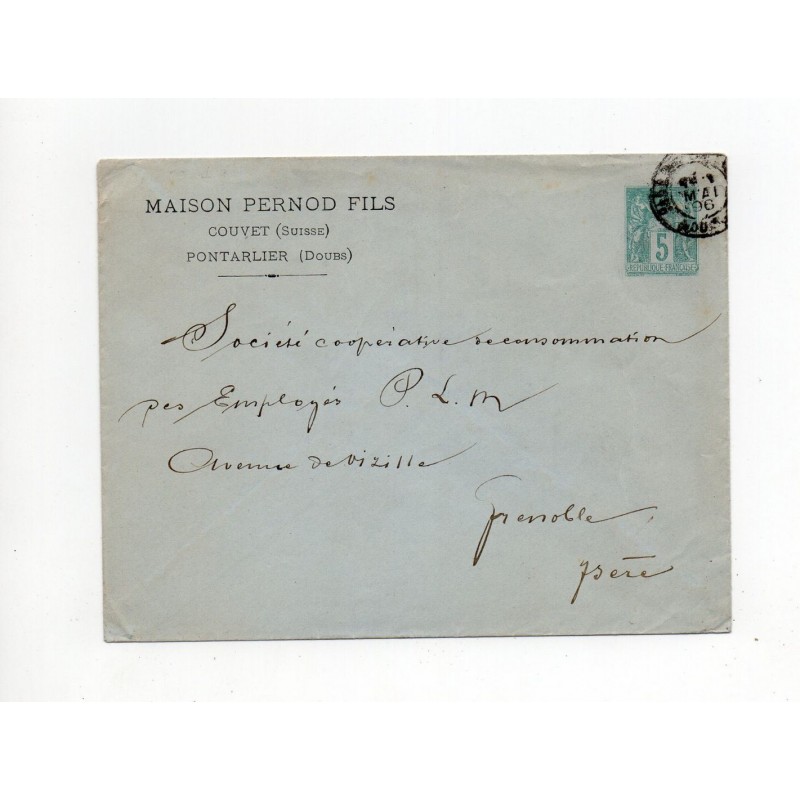 MAISON PERNOD FILS
COUVET (SUISSE)
PONTARLIER (DOUBS)
5
REPUBLIQUE FRANÇAISE
MAI
96
DOUBS
Société coopérative de consommation
des Employés P. L. M
Avenue de Vizille
Grenoble
Isère